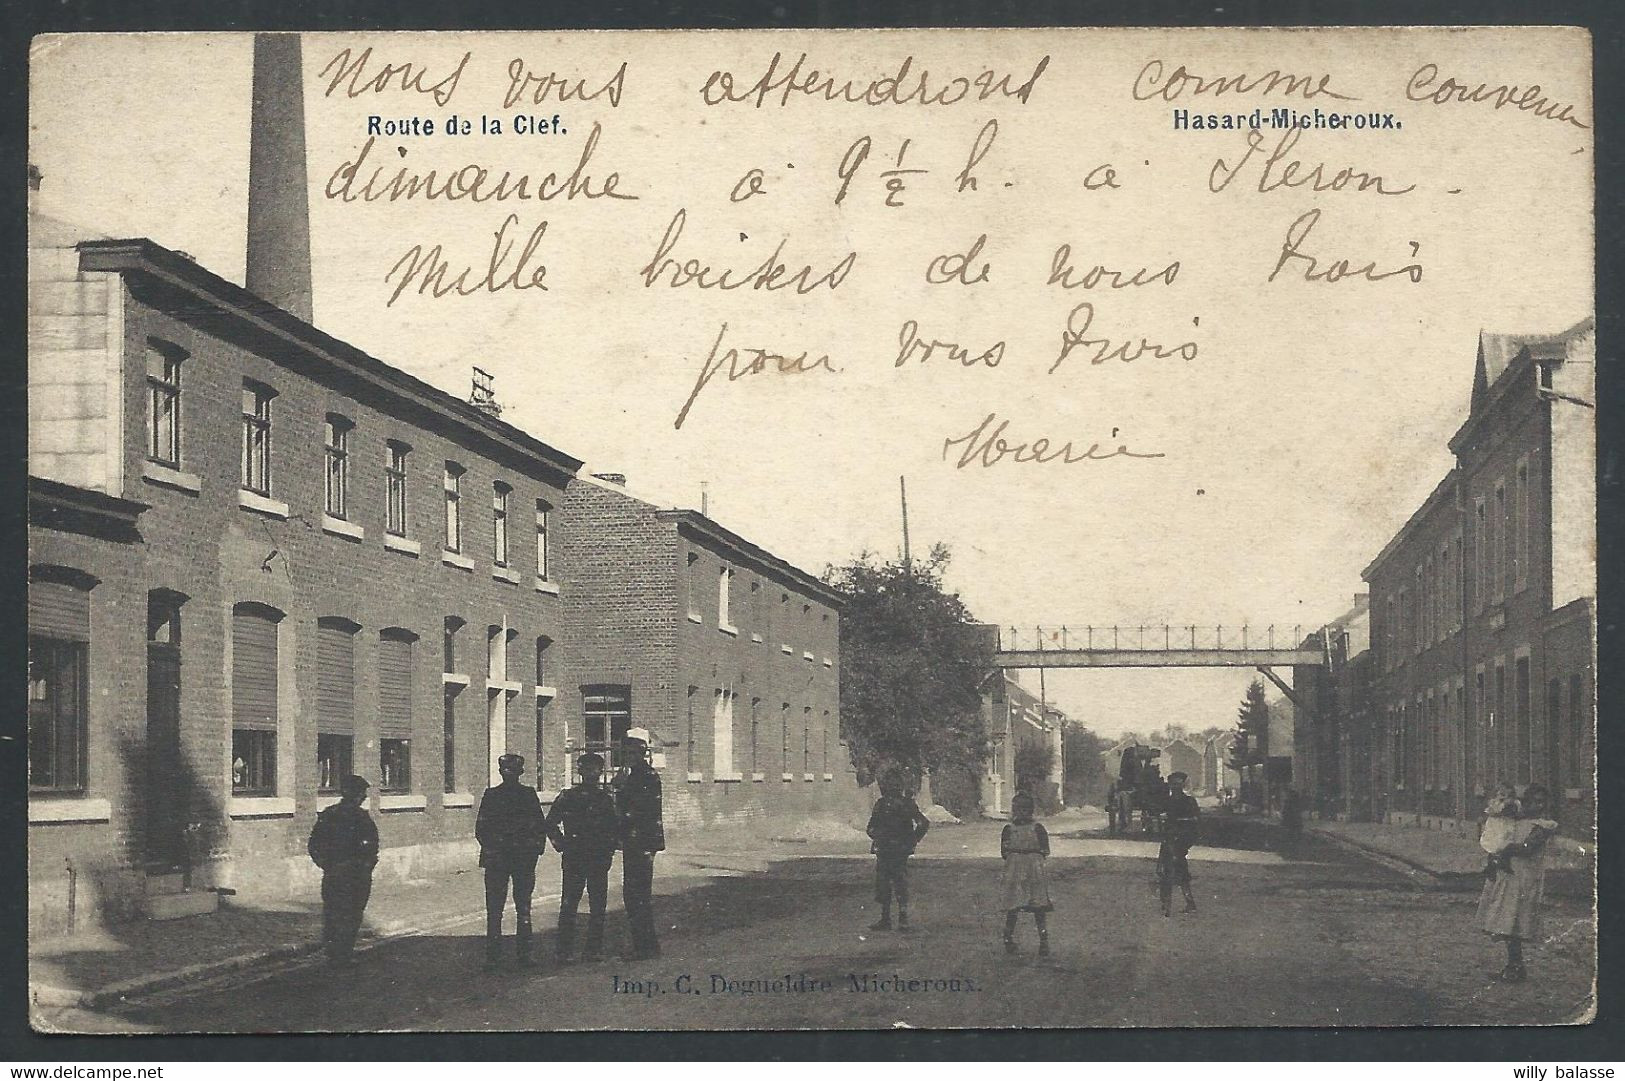 Nous vous attendrons comme convenu
Route de la Clef.
Hasard-Micheroux.
dimanche à 9 1/2 h. à Fléron.
Mille baisers de nous trois
pour vous trois
Marie
Imp. C. Degueldre Micheroux.
delcampe.net
willy balasse